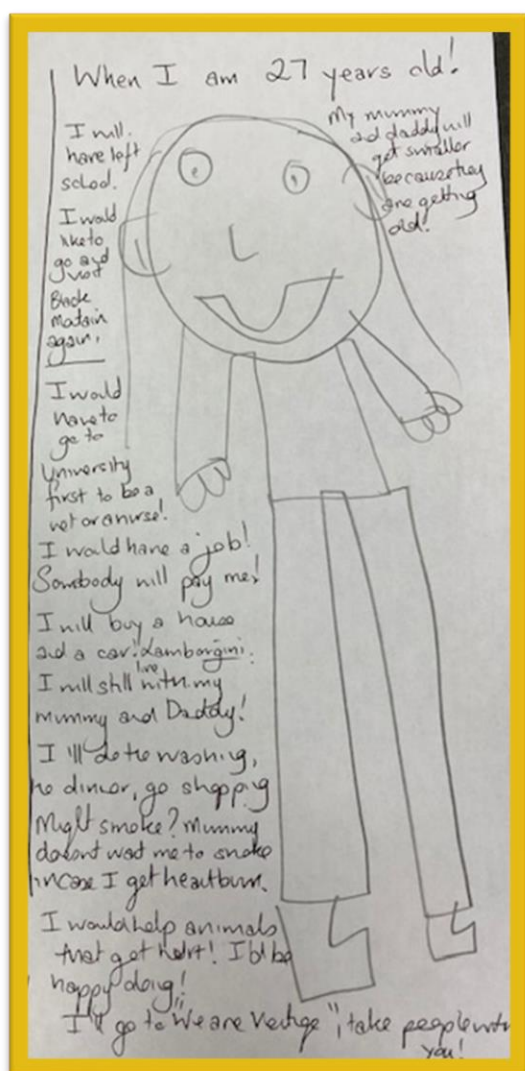 When I am 27 years old!
I will
have left
school.
I would
like to
go and
visit
Black
Matain
again,
I would
have to
go to
University
first to be a
vet or a nurse!
I would have a job!
Somebody will pay me!
I will buy a house
and a car! Lamborgini.
I will still live with my
mummy and Daddy!
I'll do the washing,
he dinner, go shopping
Might smoke? Mummy
doesnt want me to smoke
incase I get heartburn.
I would help animals
that got hurt! I'd be
happy doing!
I'll go to "We are Vertige", take people with
you!
My mummy
and daddy will
get smaller
because they
are getting
old!